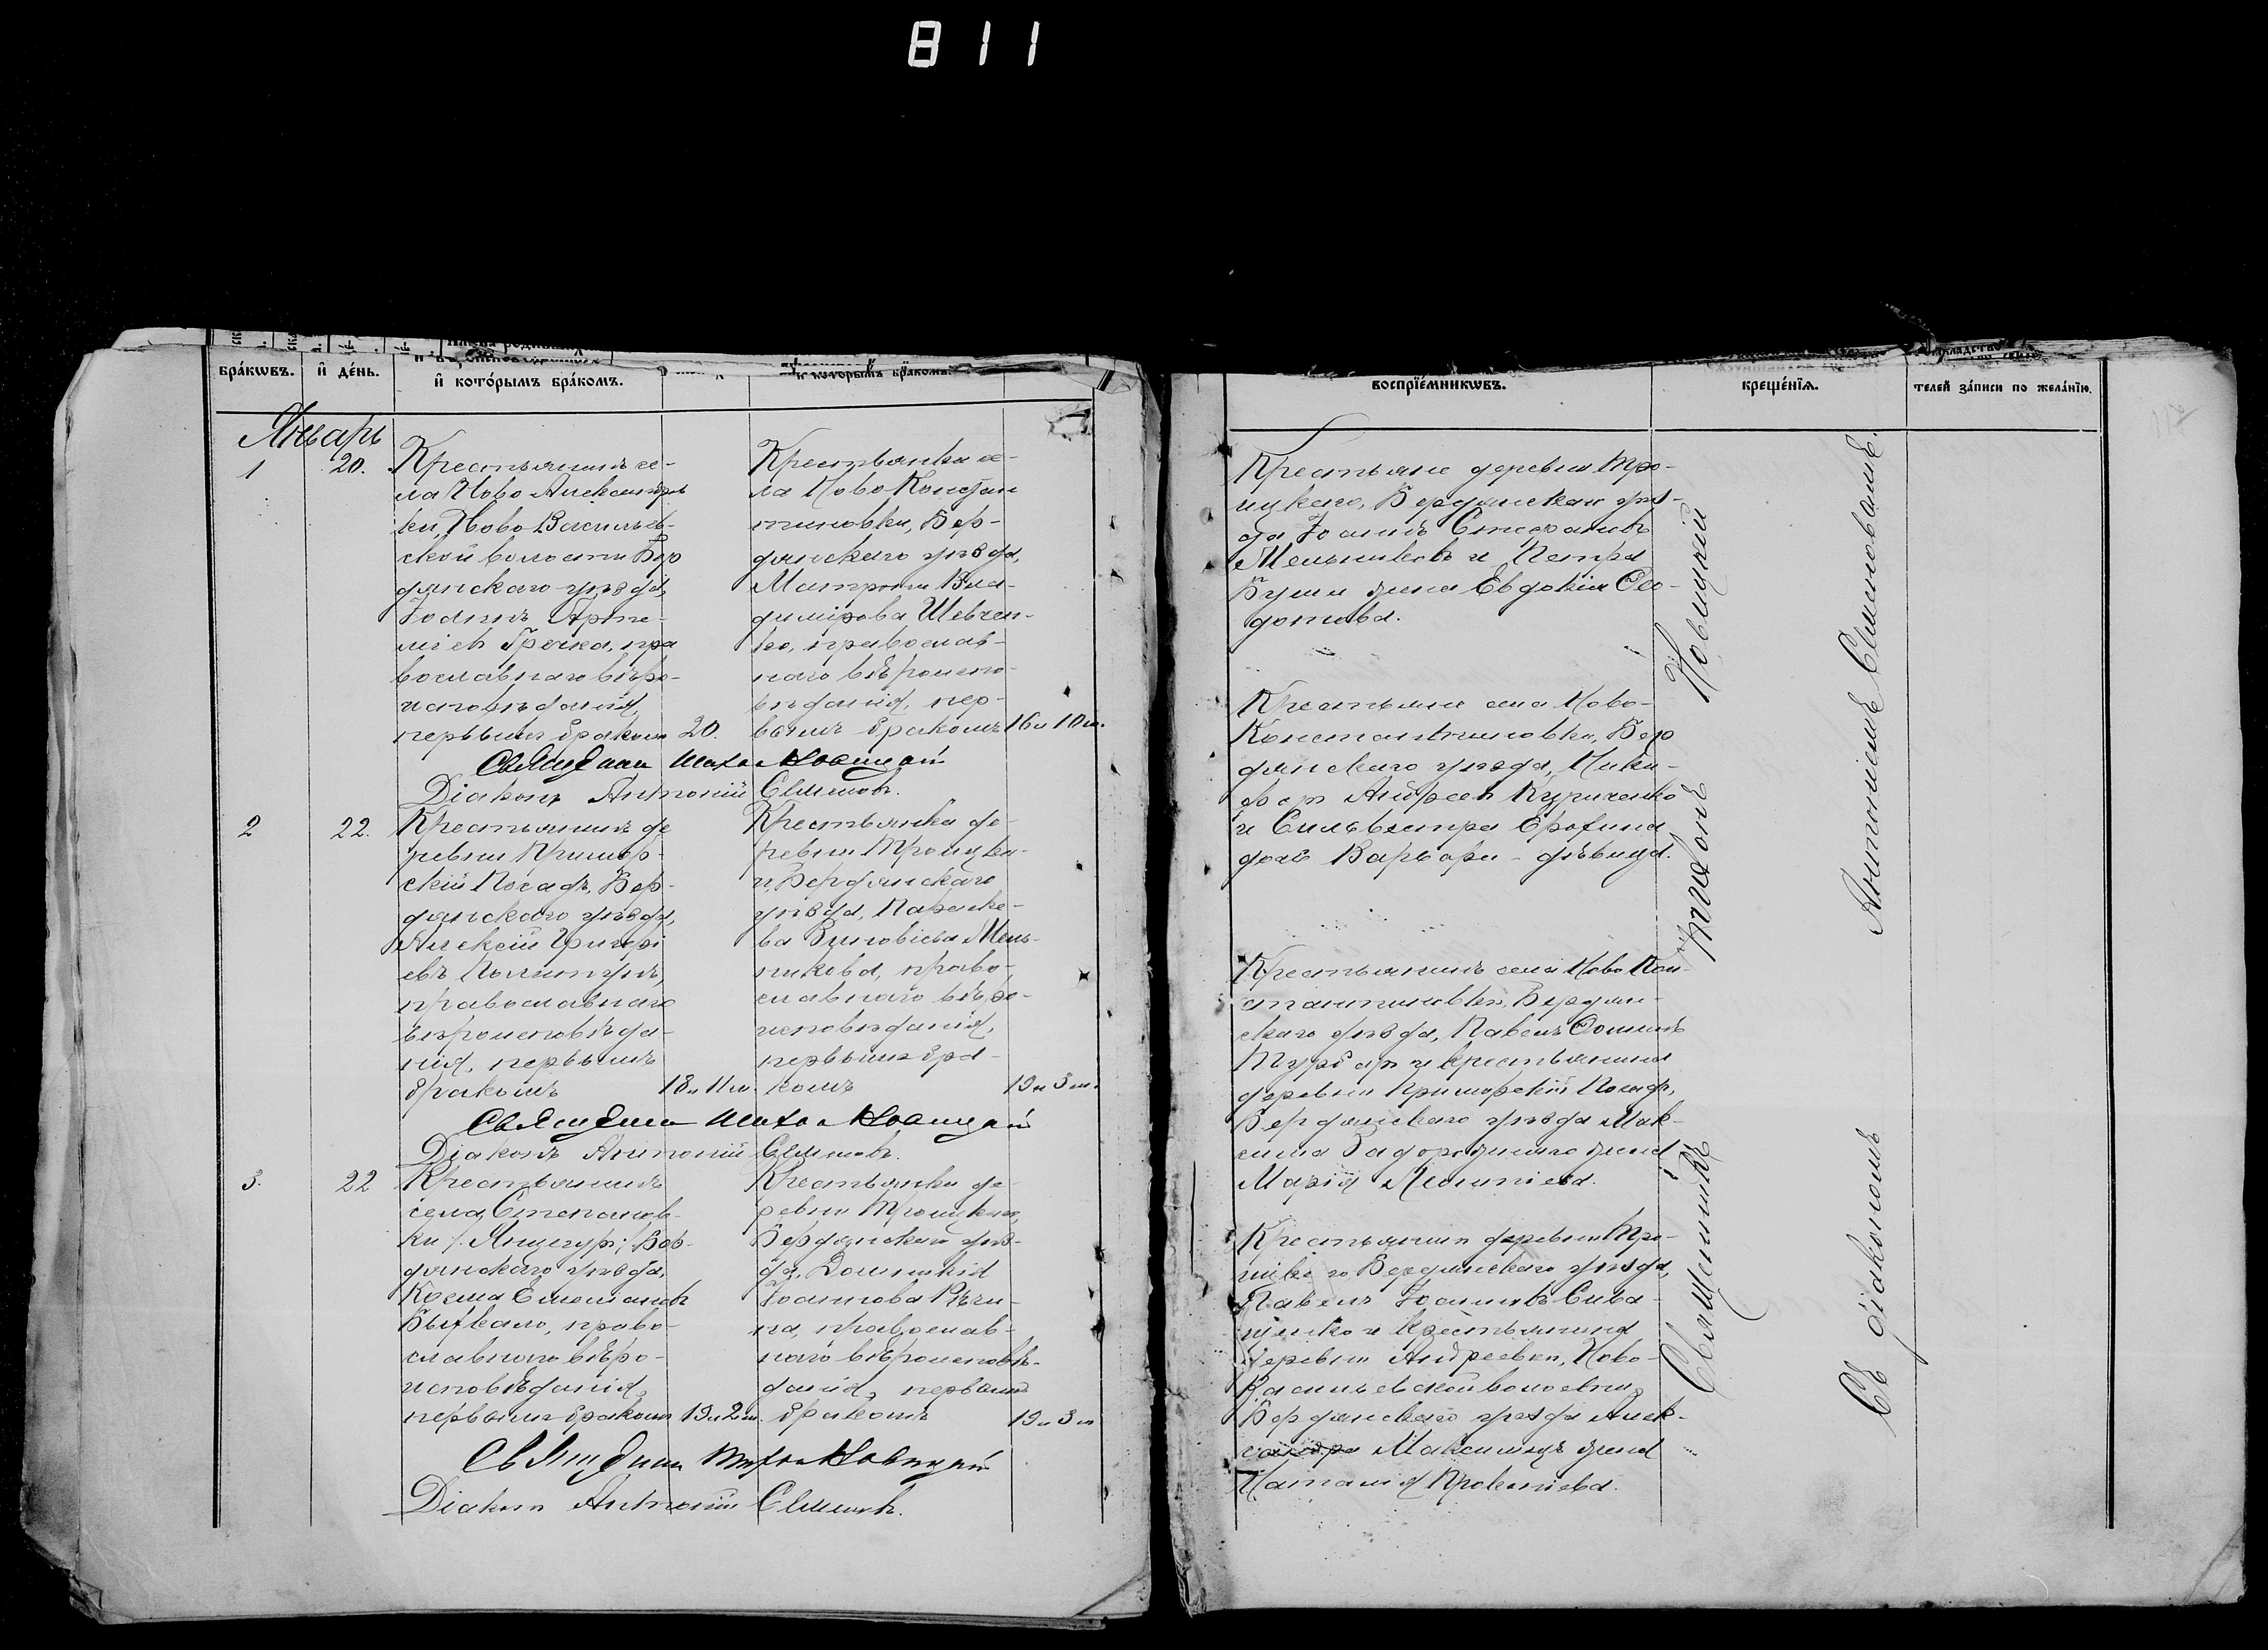 811
бра́кѡвъ.
и҆ де́нь.
и҆ кото́рымъ бра́комъ.
и҆ кото́рымъ бра́комъ.
Январь
1
20.
Крестьянинъ се-
ла Ново Александров
ки, Ново-Васильев-
ской волости Бер
дянскаго уѣзда,
Іоаннъ Арте-
міевъ Гречка, пра
вославнаго вѣро-
исповѣданія,
первымъ бракомъ
20.
Крестьянка се-
ла Ново Констан
тиновки, Бер-
дянскаго уѣзда,
Матрона Вла-
димірова Шевчен-
ко, православ-
наго вѣроиспо-
вѣданія, пер-
вымъ бракомъ
16 и 10 м.
Священникъ Новицкій
Діаконъ Антоній Семеновъ.
2
22.
Крестьянинъ де
ревни Примор-
скій Посадъ, Бер-
дянскаго уѣзда,
Алексій Григорі
евъ
православнаго
вѣроисповѣда-
нія, первымъ
бракомъ
18 и 11 м.
Крестьянка де-
ревни Троицка-
го, Бердянскаго
уѣзда, Параске-
ва Зиновіева Мель-
никова, право-
славнаго вѣро-
исповѣданія,
первымъ бра-
комъ
19 и 3 м.
Священникъ Новицкій
Діаконъ Антоній Семеновъ.
3.
22
Крестьянинъ
села Степанов-
ки Бер-
дянскаго уѣзда,
Косма
право-
славнаго вѣро-
исповѣданія,
первымъ бракомъ
19 и 2 м.
Крестьянка де-
ревни Троицкаго,
Бердянскаго уѣз-
да, Домникія
Іоаннова Рѣчи-
на, православ-
наго вѣроисповѣ-
данія, первымъ
бракомъ
19 и 3 м
Священникъ Новицкій
Діаконъ Антоній Семеновъ.
воспрїе́мникѡвъ.
креще́нїѧ.
телей за́писи по жела́нїю.
Крестьяне деревни Тро-
ицкаго, Бердянскаго уѣз-
да Іоаннъ Стефановъ
Мельниковъ и Петра
жена Евдокія Ѳео-
дотова.
Крестьяне села Ново-
Константиновки, Бер
дянскаго уѣзда, Ники-
форъ Андреевъ Куриченко
и Сильвестра
дочь Варвара - дѣвица.
Крестьянинъ села Ново Кон-
стантиновки, Бердян-
скаго уѣзда, Павелъ Ѳоминъ
и крестьянина
деревни Приморскій Посадъ,
Бердянскаго уѣзда Мак-
сима Задорожнаго жена
Марія Леонтіева.
Крестьянинъ деревни Тро-
ицкаго Бердянскаго уѣзда,
Павелъ Іоанновъ Сива-
и крестьянина
деревни Андреевки, Ново-
Васильевской волости,
Бердянскаго уѣзда Алек-
сандра жена
Наталія Прокопіева.
Священникъ Новицкій
Съ діакономъ Антоніемъ Семеновымъ.